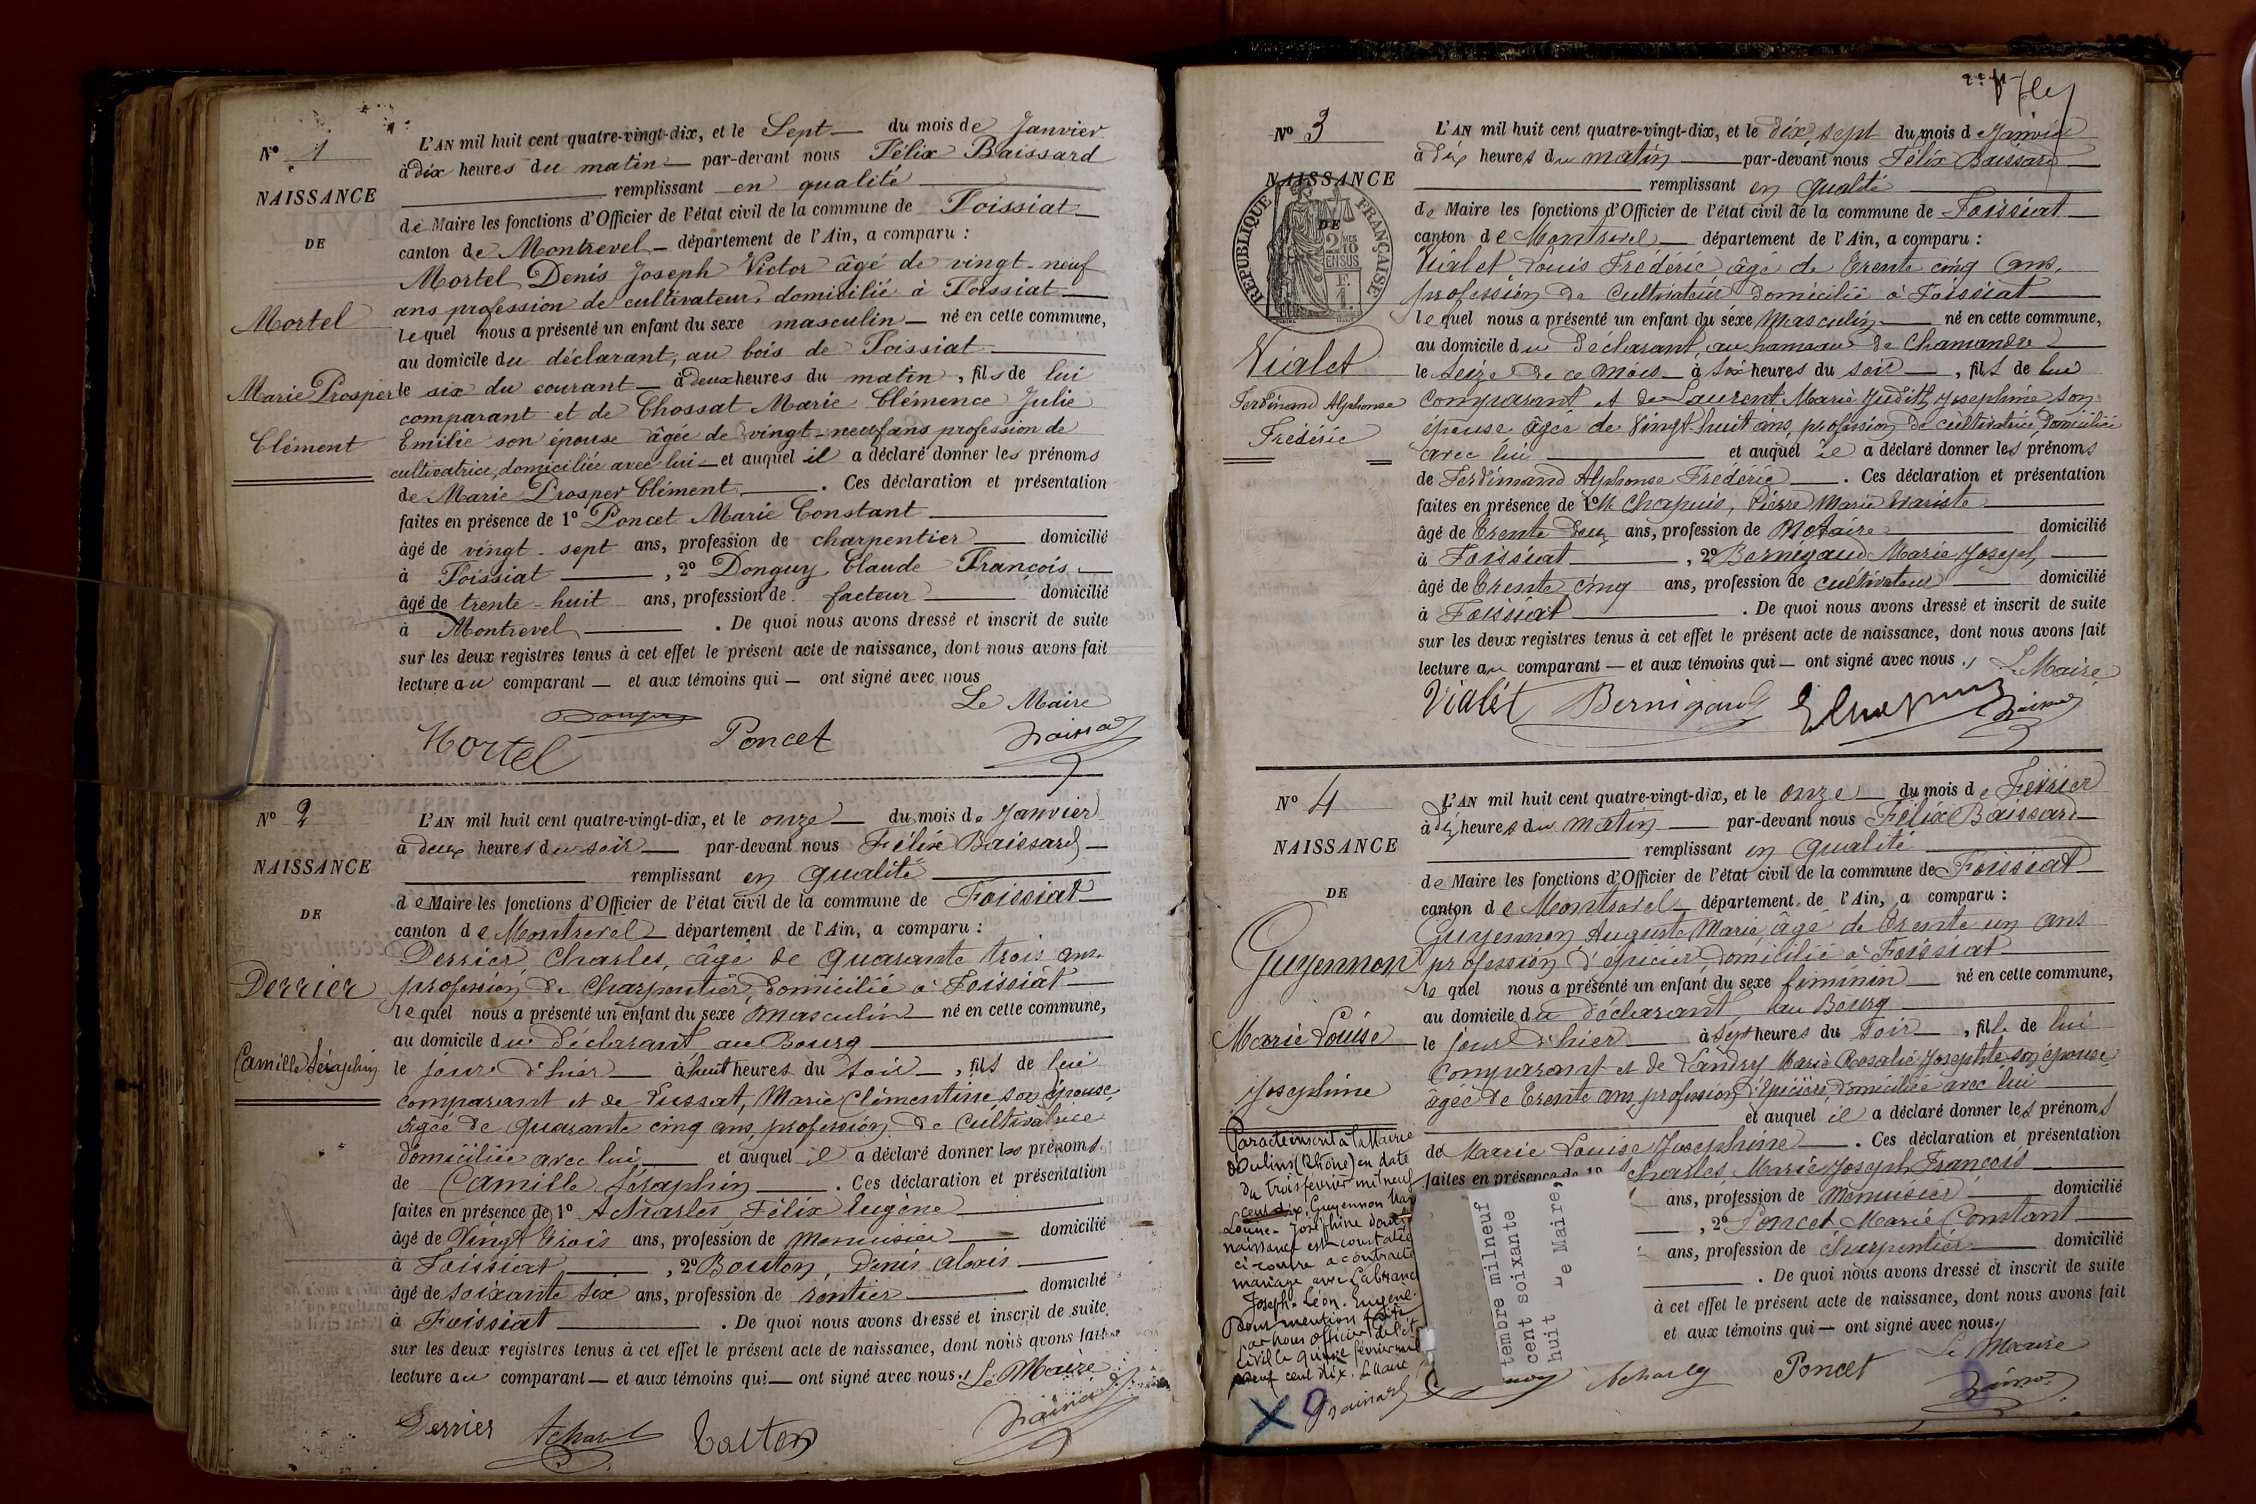 N° 1
NAISSANCE
DE
Mortel
Marie Prosper
Clément
L'AN mil huit cent quatre-vingt-dix, et le Sept du mois de Janvier
à dix heures du matin par-devant nous Félix Baissard
remplissant en qualité
de Maire les fonctions d'Officier de l'état civil de la commune de Foissiat
canton de Montrevel département de l'Ain, a comparu :
Mortel Denis Joseph Victor âgé de vingt-neuf
ans profession de cultivateur, domicilié à Foissiat
lequel nous a présenté un enfant du sexe masculin né en cette commune,
au domicile du déclarant, au bois de Foissiat
le six du courant à deux heures du matin, fils de lui
comparant et de Chossat Marie Clémence Julie
Emilie son épouse âgée de vingt-neuf ans profession de
cultivatrice, domiciliée avec lui et auquel il a déclaré donner les prénoms
de Marie Prosper Clément. Ces déclaration et présentation
faites en présence de 1° Poncet Marie Constant
âgé de vingt-sept ans, profession de charpentier domicilié
à Foissiat, 2° Donguy Claude François
âgé de trente-huit ans, profession de facteur domicilié
à Montrevel. De quoi nous avons dressé et inscrit de suite
sur les deux registres tenus à cet effet le présent acte de naissance, dont nous avons fait
lecture au comparant et aux témoins qui ont signé avec nous
Le Maire
Donguy
Mortel Poncet Baissard
N° 2
NAISSANCE
DE
Derrier
Camille Séraphin
L'AN mil huit cent quatre-vingt-dix, et le onze du mois de Janvier
à deux heures du soir par-devant nous Félix Baissard
remplissant en qualité
de Maire les fonctions d'Officier de l'état civil de la commune de Foissiat
canton de Montrevel département de l'Ain, a comparu :
Derrier Charles, âgé de quarante trois ans
profession de Charpentier, domicilié à Foissiat
lequel nous a présenté un enfant du sexe Masculin né en cette commune,
au domicile du déclarant au Bourg
le jour d'hier à huit heures du soir, fils de lui
comparant et de Lussat, Marie Clémentine, son épouse
âgée de quarante cinq ans, profession de Cultivatrice
domiciliée avec lui et auquel il a déclaré donner les prénoms
de Camille Séraphin. Ces déclaration et présentation
faites en présence de 1° Acharles Félix Eugène
âgé de Vingt trois ans, profession de Menuisier domicilié
à Foissiat, 2° Bouton, Denis Alexis
âgé de soixante six ans, profession de rentier domicilié
à Foissiat. De quoi nous avons dressé et inscrit de suite
sur les deux registres tenus à cet effet le présent acte de naissance, dont nous avons fait
lecture au comparant et aux témoins qui ont signé avec nous. Le Maire
Derrier Bouton Baissard
N° 3
NAISSANCE
DE
RÉPUBLIQUE FRANÇAISE
2 MES
10 EN SUS
Vialet
Ferdinand Alphonse
Frédéric
L'AN mil huit cent quatre-vingt-dix, et le dix sept du mois d Janvier
à dix heures du matin par-devant nous Félix Baissard
remplissant en qualité
de Maire les fonctions d'Officier de l'état civil de la commune de Foissiat
canton de Montrevel département de l'Ain, a comparu :
Vialet Louis Frédéric âgé de trente cinq ans,
profession de Cultivateur domicilié à Foissiat
lequel nous a présenté un enfant du sexe Masculin né en cette commune,
au domicile du déclarant, au hameau de Chamandre
le seize de ce mois à six heures du soir, fils de lui
comparant et de Laurent Marie Judith Josephine son
épouse âgée de Vingt huit ans, profession de cultivatrice, domiciliée
avec lui et auquel il a déclaré donner les prénoms
de Ferdinand Alphonse Frédéric. Ces déclaration et présentation
faites en présence de 1° Me Chapuis, Pierre Marie Evariste
âgé de trente deux ans, profession de Notaire domicilié
à Foissiat, 2° Bernigaud Marie Joseph
âgé de trente cinq ans, profession de cultivateur domicilié
à Foissiat. De quoi nous avons dressé et inscrit de suite
sur les deux registres tenus à cet effet le présent acte de naissance, dont nous avons fait
lecture au comparant et aux témoins qui ont signé avec nous. Le Maire
Vialet Bernigaud Chapuis Baissard
N° 4
NAISSANCE
DE
Guyennon
Marie Louise
Josephine
L'AN mil huit cent quatre-vingt-dix, et le onze du mois de Fevrier
à dix heures du matin par-devant nous Félix Baissard
remplissant en qualité
de Maire les fonctions d'Officier de l'état civil de la commune de Foissiat
canton de Montrevel département de l'Ain, a comparu :
Guyennon Auguste Marie, âgé de trente un ans
profession d'épicier, domicilié à Foissiat
lequel nous a présenté un enfant du sexe féminin né en cette commune,
au domicile du déclarant, au Bourg
le jour d'hier à sept heures du soir, fille de lui
comparant et de Landry Marie Rosalie Josephte son épouse
âgée de trente ans, profession d'épicière, domiciliée avec lui
et auquel il a déclaré donner les prénoms
de Marie Louise Josephine. Ces déclaration et présentation
faites en présence de 1° Acharles, Marie Joseph François
ans, profession de Menuisier domicilié
, 2° Poncet Marie Constant
ans, profession de charpentier domicilié
. De quoi nous avons dressé et inscrit de suite
à cet effet le présent acte de naissance, dont nous avons fait
et aux témoins qui ont signé avec nous.
Le Maire
Poncet Baissard
Par acte inscrit à la Mairie
d'Oulins (Rhône) en date
du trois février mil neuf
cent dix, Guyennon Marie
Louise-Joséphine dont la
naissance est constatée
ci contre a contracté
mariage avec Labranc
Joseph-Léon-Eugène.
Pour mention faite
par nous officier de l'ét
civil le quinze février mil
neuf cent dix. Le Maire
Baissard
tembre milneuf
cent soixante
huit Le Maire,